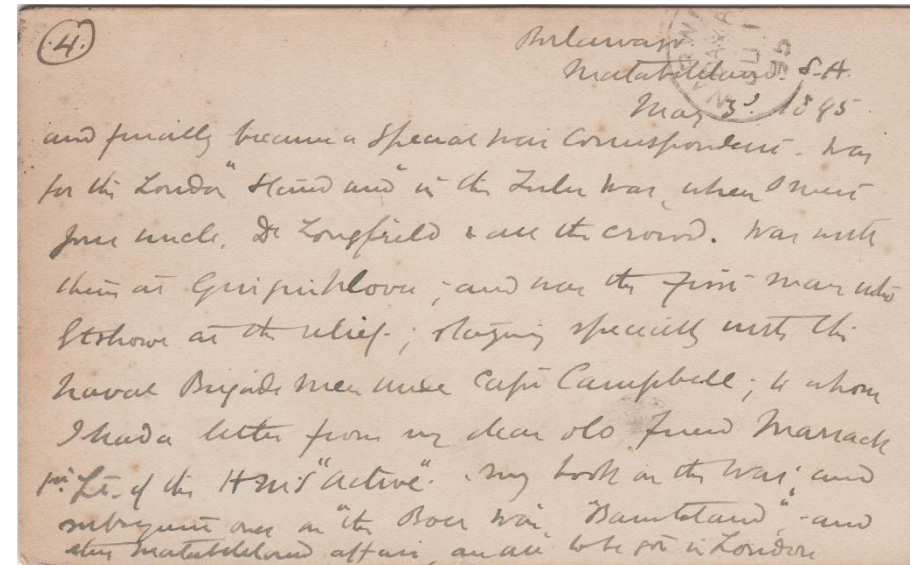 (4)
Bulawayo
Matabeleland. S.A.
May 3d. 1895
and finally became a Special War Correspondent - was
for the London "Standard" in the Zulu War, when I met
your uncle, Dr Longfield & all the crowd. Was with
them at Gingihlovu; and was the first man into
Etshowe at the relief; staying specially with the
Naval Brigade men under Capt Campbell; to whom
I had a letter from my dear old friend Marrack
1st Lt. of the HMS "Active". My book on the War; and
subsequent ones on "the Boer War" "Basutoland", - and
this Matabeleland affair, are all to be got in London